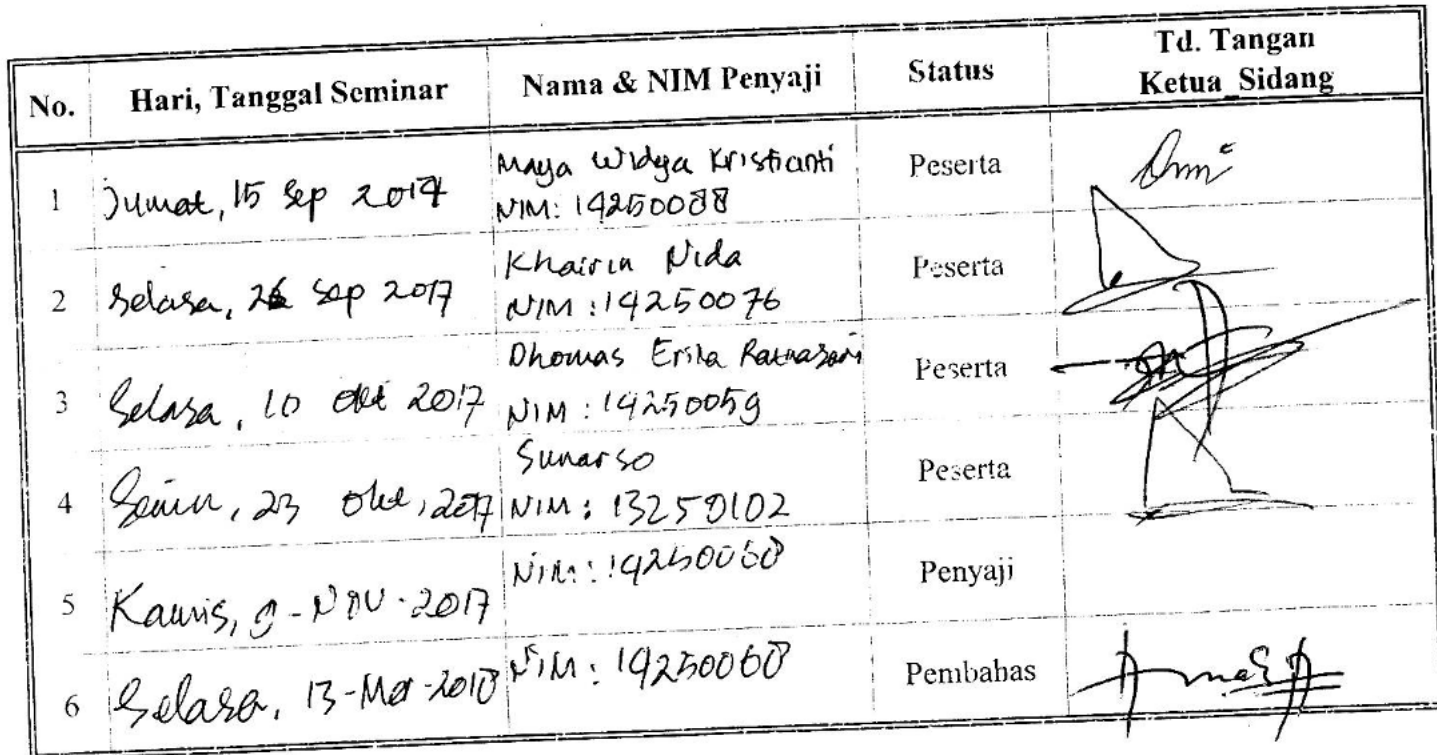 No. Hari, Tanggal Seminar Nama & NIM Penyaji Status Td. Tangan
Ketua Sidang
1 Jumat, 15 Sep 2017 Maya Widya Kristianti Peserta
NIM: 14250088
2 Selasa, 26 Sep 2017 Khairin Nida Peserta
NIM : 14250076
3 Selasa, 10 Okt 2017 Dhomas Erika Ratnasari Peserta
NIM : 14250059
4 Senin, 23 Okt, 2017 Sunarso Peserta
NIM : 13250102
5 Kamis, 9 - NOV - 2017 NIM : 14250060 Penyaji
6 Selasa, 13 - Mar - 2018 NIM : 14250060 Pembahas